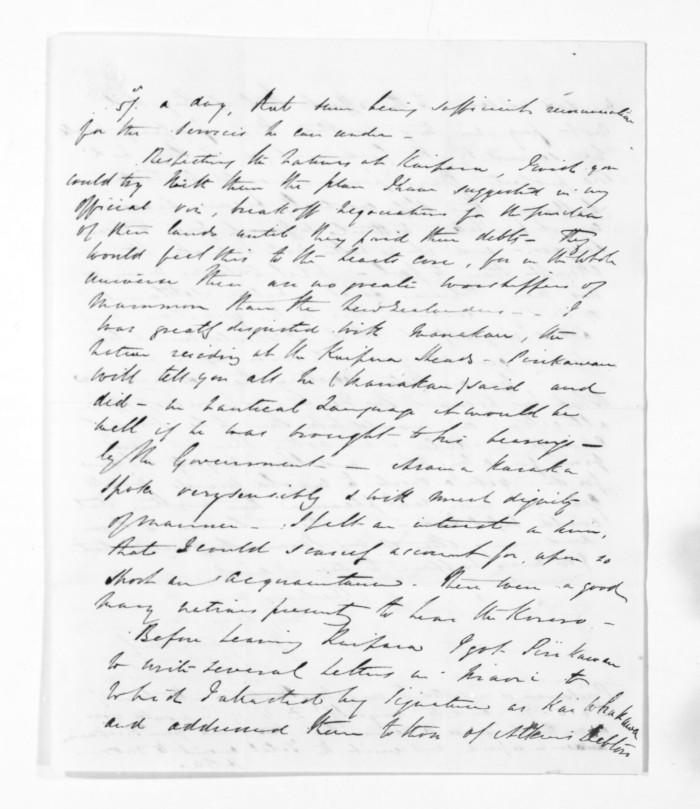 5/. a day, that sum being sufficient remuneration
for the services he can render —
Respecting the Natives at Kaipara, I wish you
would try with them the plan I have suggested in my
official viz, break off negociations for the purchase
of their lands until they paid their debts — They
would feel this to the hearts core, for in the whole
universe there are no greater worshippers of
Mammon than the New Zealanders — I
was greatly disgusted with Manakau, the
Native residing at the Kaipara Heads —
will tell you all he (Manakau) said and
did — in Nautical Language it would be
well if he was brought to his bearings —
by the Government — Arama Karaka
spoke very sensibly & with much dignity
of manner — I felt an interest in him,
that I could scarcely account for, upon so
short an acquaintance. There were a good
many natives present to hear the Korero —
Before leaving Kaipara I got
to write several letters in Maori to
which I attached my signature as Kai Whakawa
and addressed them to those of Debtors